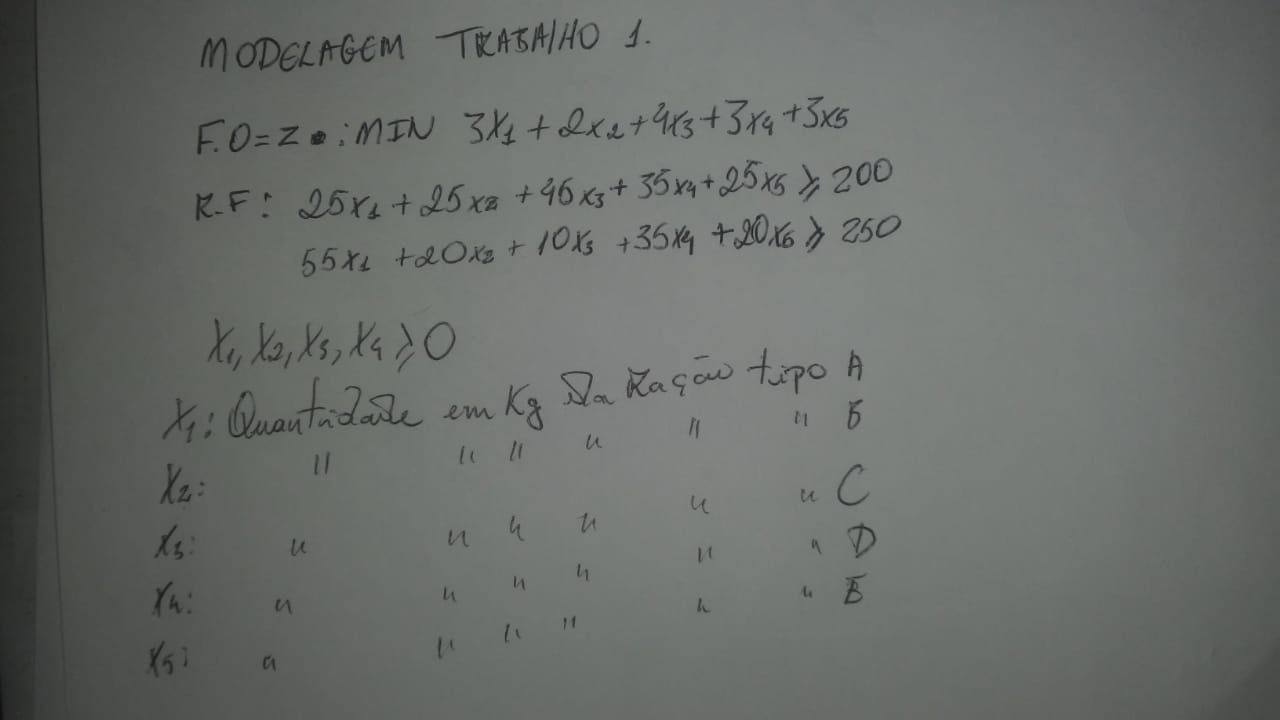 MODELAGEM TRABALHO 1.
F.O=Z : MIN 3X1 + 2x2 + 4x3 + 3x4 + 3x5
R.F: 25x1 + 25x2 + 45x3 + 35x4 + 25x5 ⩾ 200
55x1 + 20x2 + 10x3 + 35x4 + 20x5 ⩾ 250
X1, X2, X3, X4 ⩾ 0
X1: Quantidade em Kg da Ração tipo A
X2: " " " " " " B
X3: " " " " " " C
X4: " " " " " " D
X5: " " " " " " E